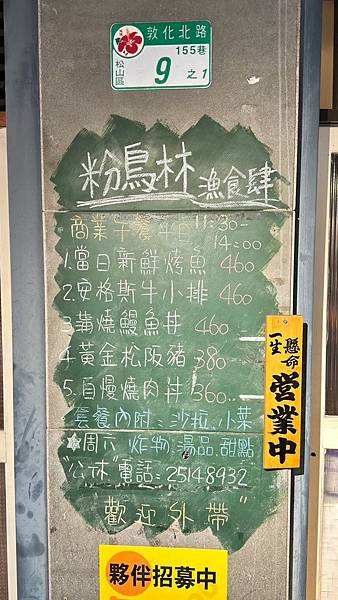 敦化北路
155巷
松山區
9之1
粉鳥林 漁食肆
商業午餐平日 11:30-14:00
1.當日新鮮烤魚 460
2.安格斯牛小排 460
3.蒲燒鰻魚丼 460
4.黃金松阪豬 380
5.自慢燒肉丼 360
套餐內附:沙拉.小菜
炸物.湯品.甜點
☆周六"公休"
電話:2514-8932
"歡迎外帶"
一生懸命
營業中
夥伴招募中